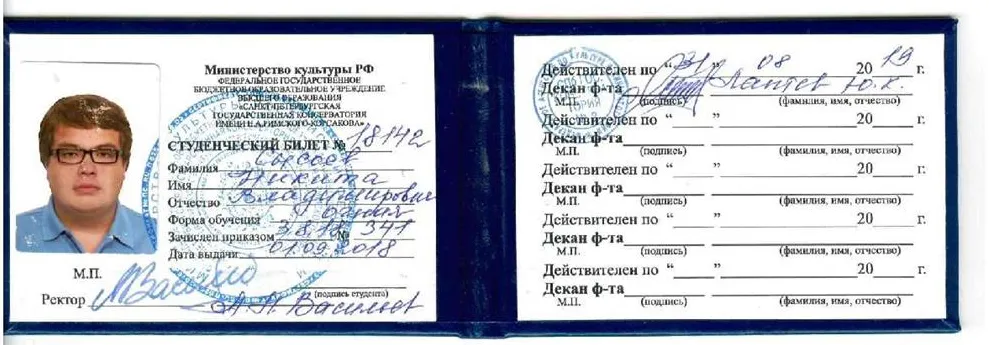 Министерство культуры РФ
ФЕДЕРАЛЬНОЕ ГОСУДАРСТВЕННОЕ
БЮДЖЕТНОЕ ОБРАЗОВАТЕЛЬНОЕ УЧРЕЖДЕНИЕ
ВЫСШЕГО ОБРАЗОВАНИЯ
«САНКТ-ПЕТЕРБУРГСКАЯ
ГОСУДАРСТВЕННАЯ КОНСЕРВАТОРИЯ
ИМЕНИ Н.А.РИМСКОГО-КОРСАКОВА»
СТУДЕНЧЕСКИЙ БИЛЕТ № 18142
Фамилия Сысоев
Имя Никита
Отчество Владимирович
Форма обучения очная
Зачислен приказом 3.8.18 № 341
Дата выдачи 01.09.2018
М.П.
Ректор
(подпись студента)
А.Н. Васильев
Действителен по “31” 08 2019 г.
Декан ф-та Лаптев Ю.К.
М.П. (подпись) (фамилия, имя, отчество)
Действителен по “ ” 20 г.
Декан ф-та
М.П. (подпись) (фамилия, имя, отчество)
Действителен по “ ” 20 г.
Декан ф-та
М.П. (подпись) (фамилия, имя, отчество)
Действителен по “ ” 20 г.
Декан ф-та
М.П. (подпись) (фамилия, имя, отчество)
Действителен по “ ” 20 г.
Декан ф-та
М.П. (подпись) (фамилия, имя, отчество)